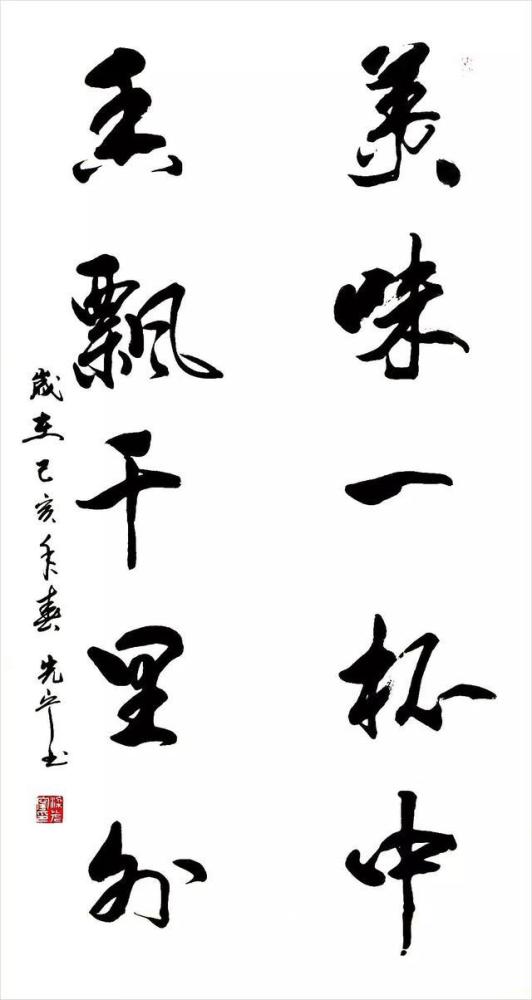 美味一杯中
香飘千里外
岁在己亥年春 先宁书